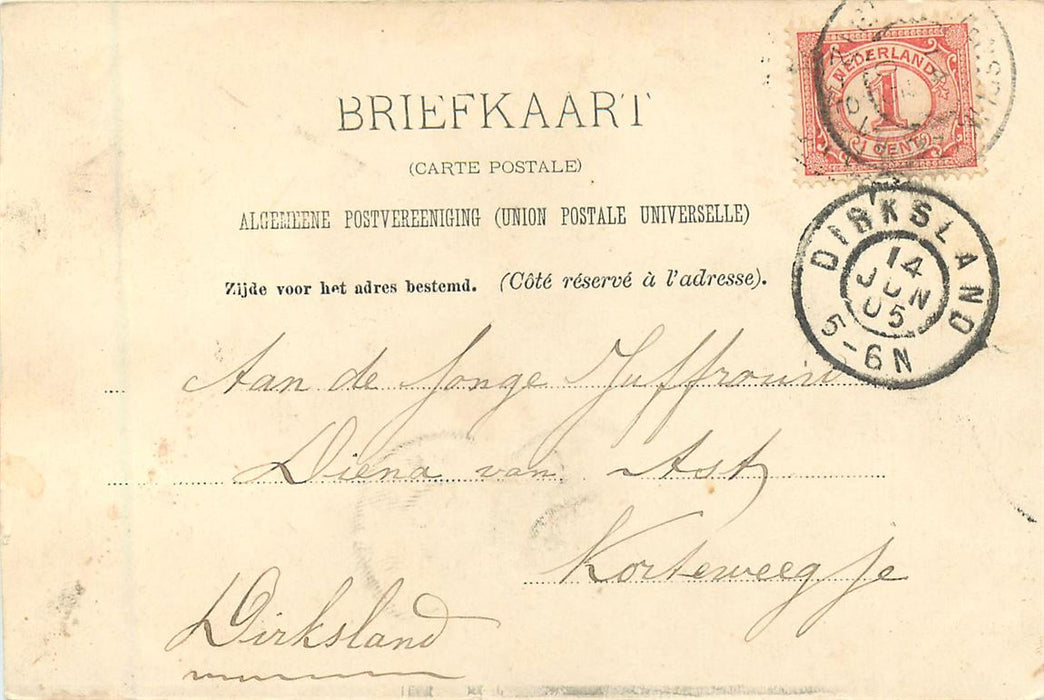 BRIEFKAART
(CARTE POSTALE)
ALGEMEENE POSTVEREENIGING (UNION POSTALE UNIVERSELLE)
Zijde voor het adres bestemd. (Côté réservé à l'adresse).
NEDERLAND
1
CENT
DIRKSLAND
14
JUN
05
5-6N
Aan de Jonge Juffrouw
Diena van Ast
Korteweegje
Dirksland